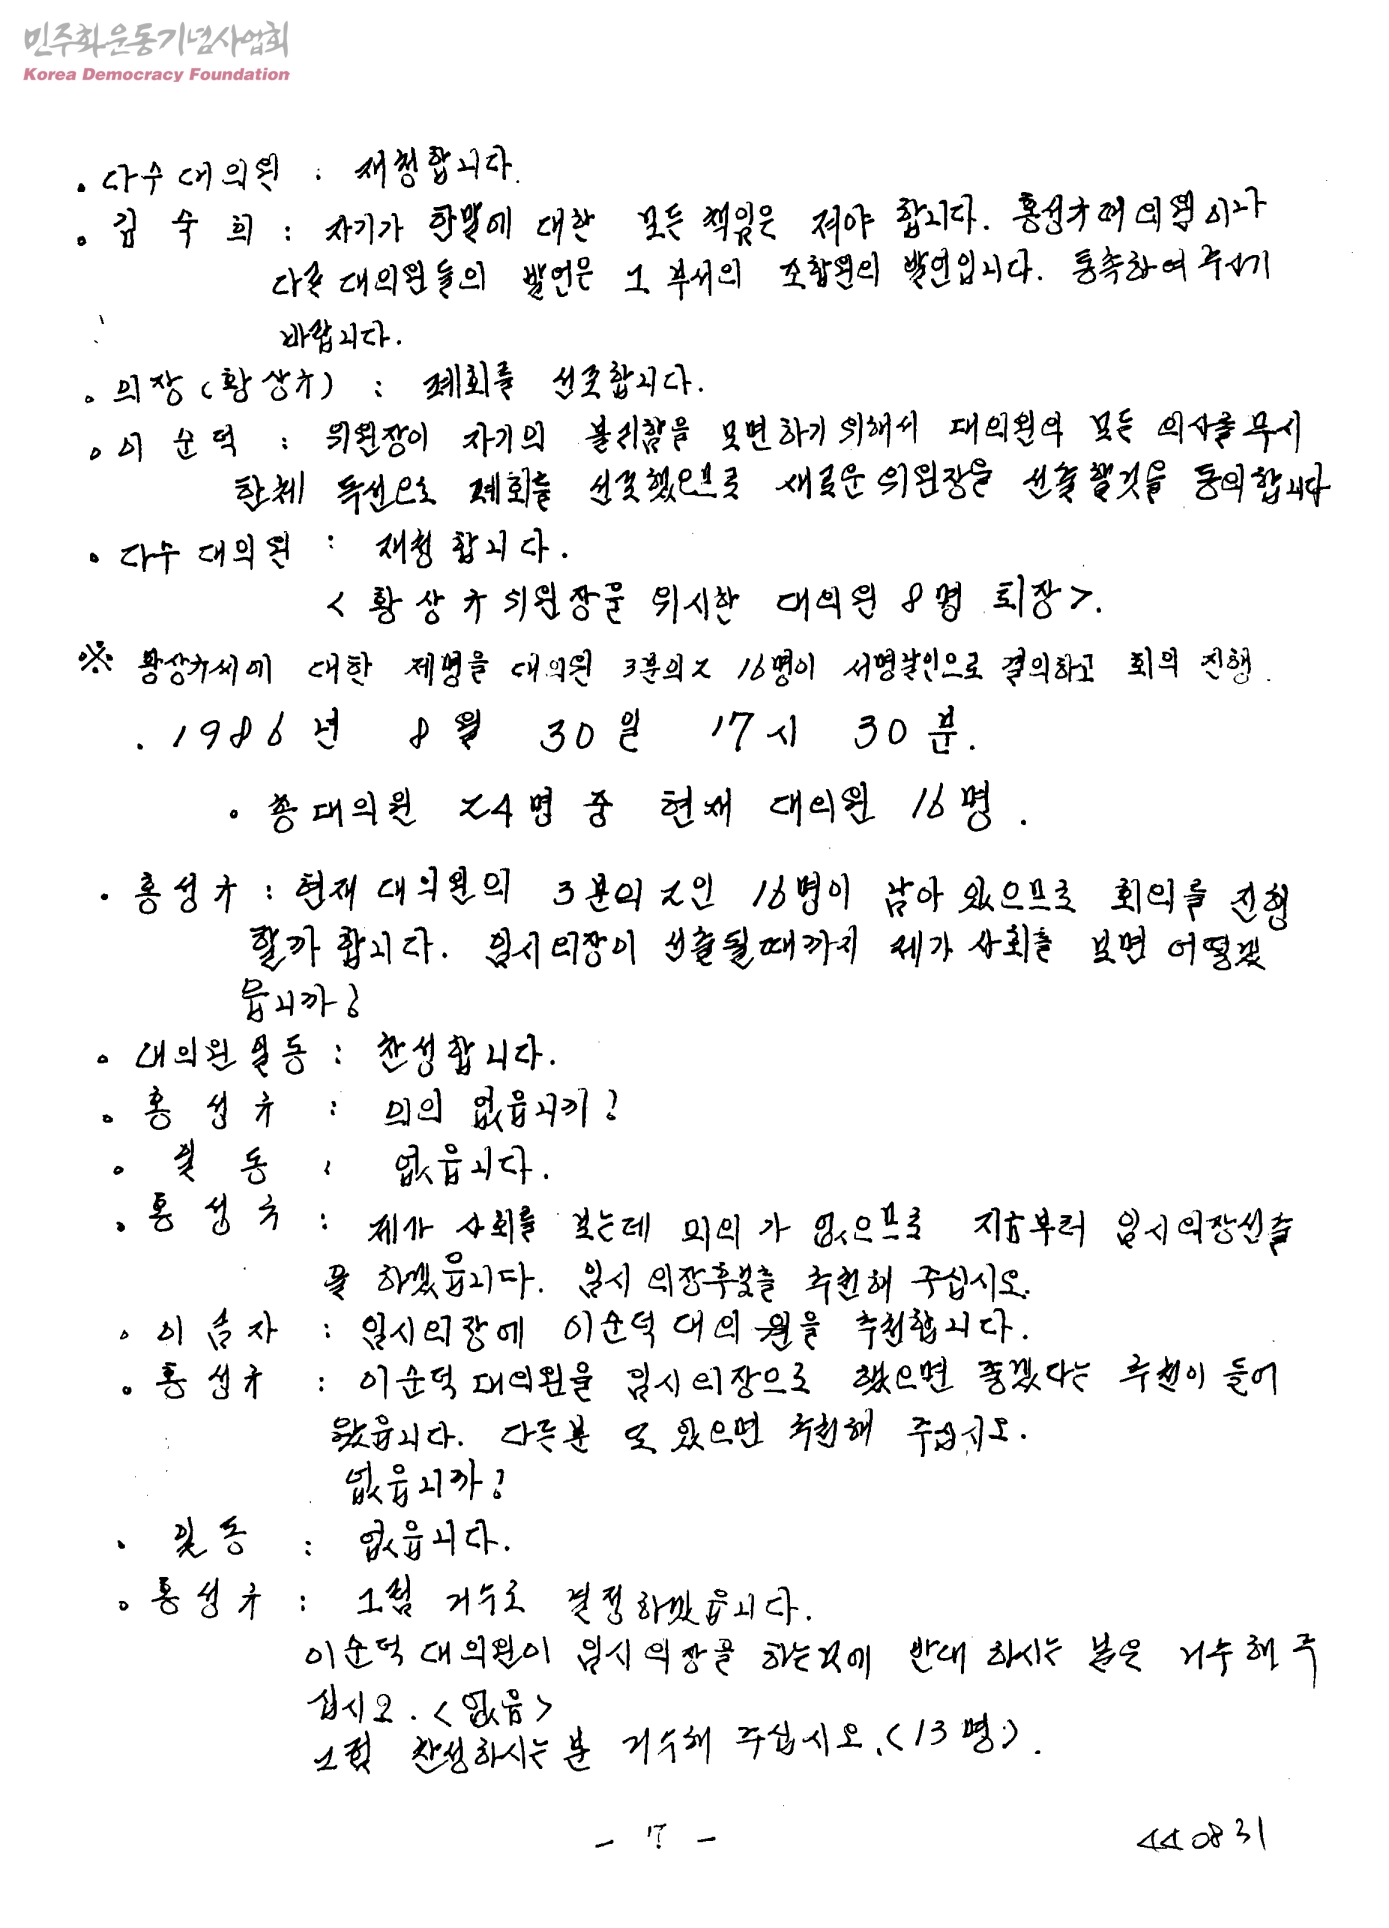 민주화운동기념사업회
Korea Democracy Foundation
. 다수대의원 : 재청합니다.
. 김 숙 희 : 자기가 한말에 대한 모든 책임은 져야 합니다. 홍성규대의원이나
다른 대의원들의 발언은 그 부서의 조합원의 발언입니다. 통촉하여 주시기
바랍니다.
. 의장(황상규) : 폐회를 선포합니다.
. 이 순 덕 : 위원장이 자기의 불리함을 모면하기 위해서 대의원의 모든 의사를 무시
한체 독선으로 폐회를 선포했으므로 새로운 위원장을 선출할것을 동의합니다
. 다수 대의원 : 재청합니다.
<황상규위원장을 위시한 대의원 8명 퇴장>.
※ 황상규씨에 대한 제명을 대의원 3분의2 16명이 서명날인으로 결의하고 회의 진행.
. 1986년 8월 30일 17시 30분.
. 총대의원 24명 중 현재 대의원 16명.
. 홍성규 : 현재 대의원의 3분의 2인 16명이 남아 있으므로 회의를 진행
할까 합니다. 임시의장이 선출될때까지 제가 사회를 보면 어떻겠
읍니까?
. 대의원일동 : 찬성합니다.
. 홍 성 규 : 의의 없읍니까?
. 일 동 : 없읍니다.
. 홍 성 규 : 제가 사회를 보는데 의의가 없으므로 지금부터 임시의장선출
을 하겠읍니다. 임시의장후보를 추천해 주십시오.
. 이 숨 자 : 임시의장에 이순덕 대의원을 추천합니다.
. 홍성규 : 이순덕대의원을 임시의장으로 했으면 좋겠다는 추천이 들어
왔읍니다. 다른분 또 있으면 추천해 주십시오.
없읍니까?
. 일동 : 없읍니다.
. 홍성규 : 그럼 거수로 결정하겠읍니다.
이순덕 대의원이 임시의장을 하는것에 반대 하시는 분은 거수해 주
십시오. <없음>
그럼 찬성하시는 분 거수해 주십시오. <13명>.
- 17 -
440831